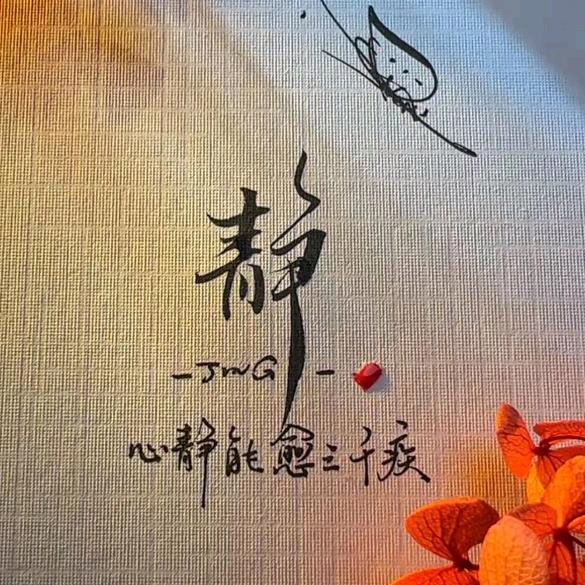 静
-JING-
心静能愈三千疾